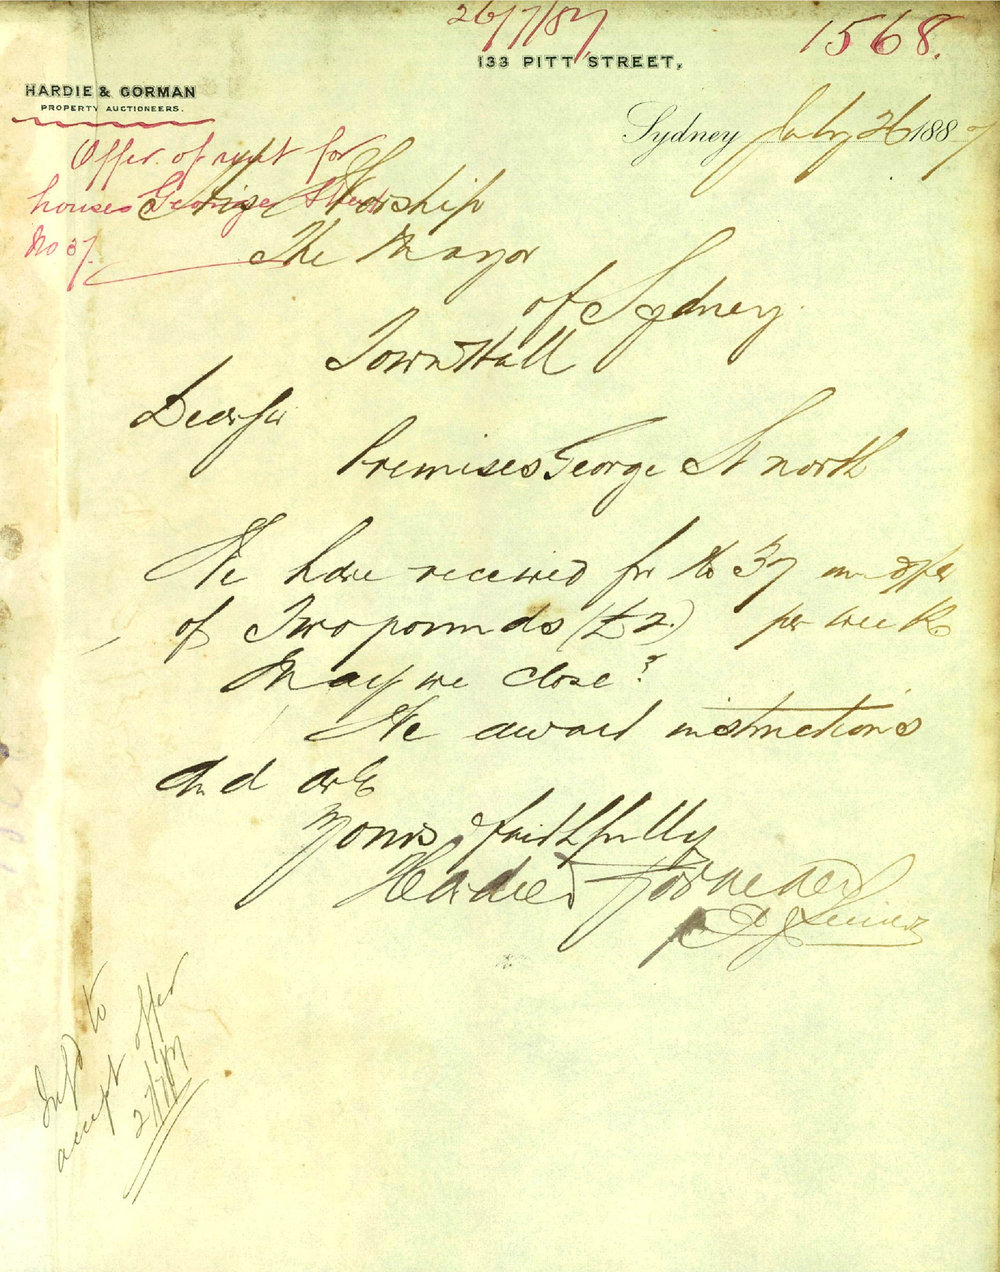 26/7/87
1568.
133 PITT STREET,
HARDIE & GORMAN
PROPERTY AUCTIONEERS.
Sydney July 26 1887
Offer of rent for
houses George Street
No 37.
His Worship
The Mayor
of Sydney.
Town Hall
Dear Sir
Premises George St north
We have received for No 37 an offer
of Two pounds (£2.) per week
May we close?
We await instructions
and are
Yours faithfully
Hardie & Gorman
Infd to
accept offer
27/7/87